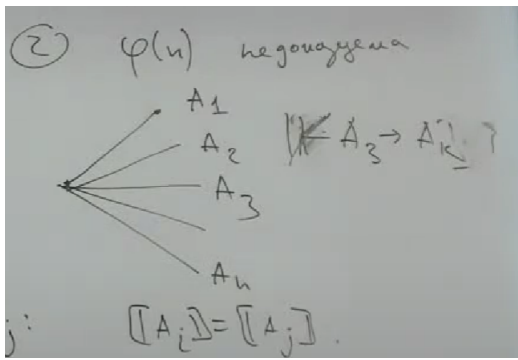 ② φ(n) недоказуема
A1
A2
A3 ⊢ A3 → Ak ?
An
j: ⟦Ai⟧=⟦Aj⟧.